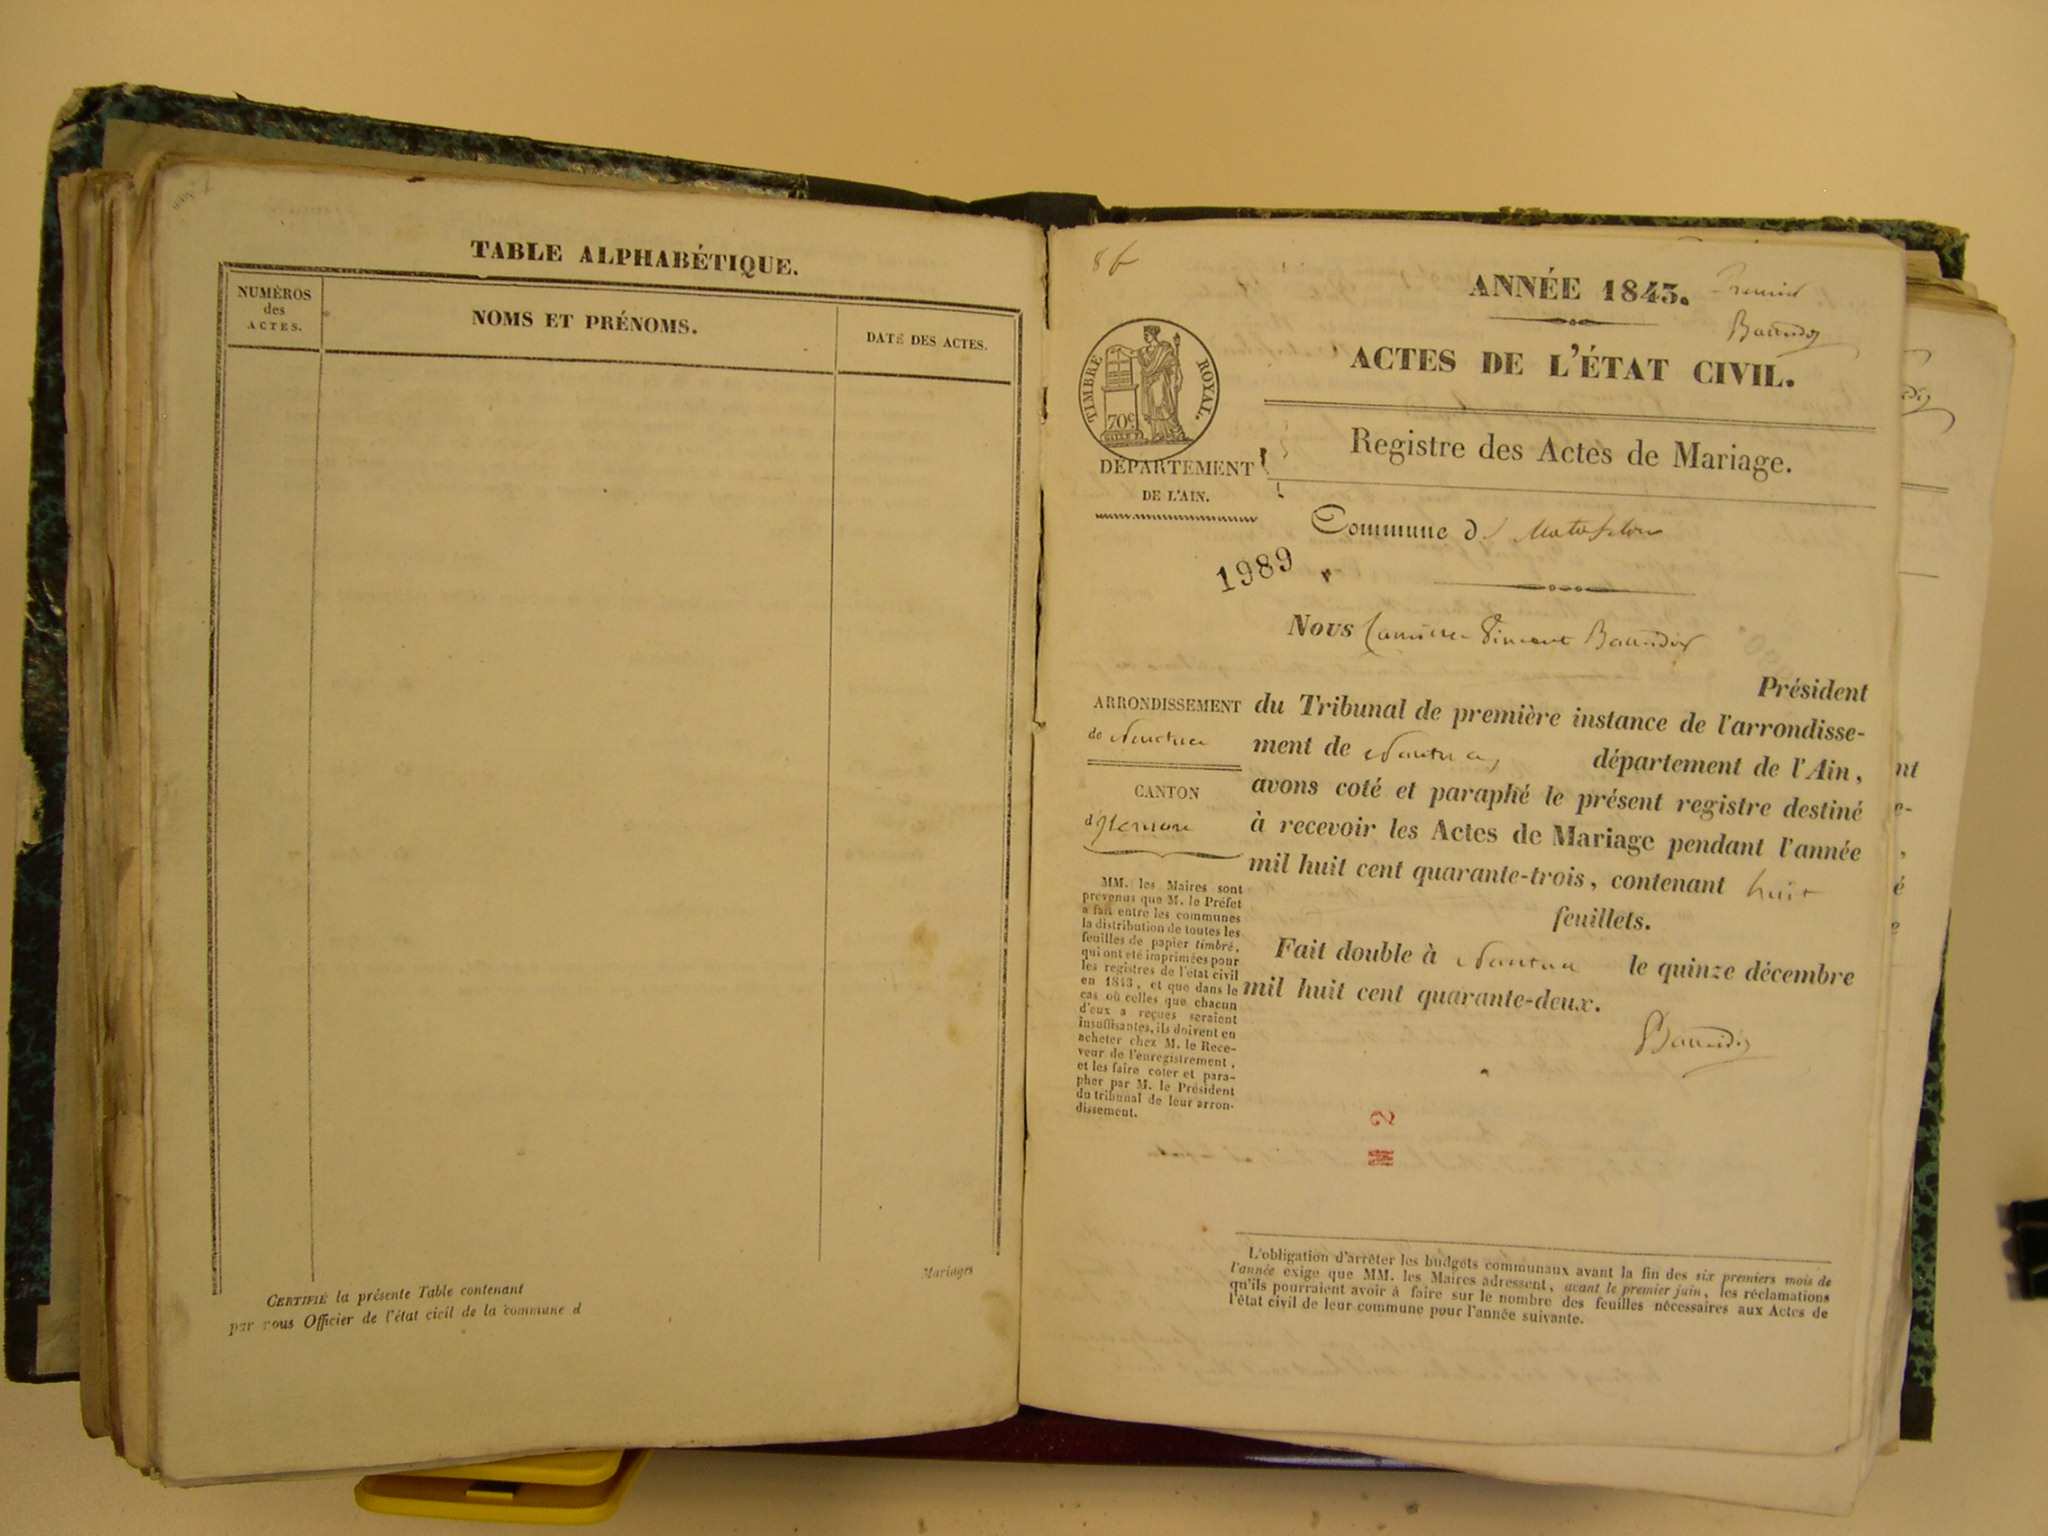 TABLE ALPHABÉTIQUE.
NUMÉROS
des
ACTES.
NOMS ET PRÉNOMS.
DATE DES ACTES.
Mariages
CERTIFIÉ la présente Table contenant
par nous Officier de l'état civil de la commune d
8 f
ANNÉE 1843.
Premier
Baudin
ACTES DE L'ÉTAT CIVIL.
TIMBRE ROYAL.
70c
DÉPARTEMENT
DE L'AIN.
Registre des Actes de Mariage.
Commune de Matafelon
1989
Nous Vincent
Président
ARRONDISSEMENT
de Nantua
CANTON
d'Izernore
du Tribunal de première instance de l'arrondisse-
ment de Nantua, département de l'Ain,
avons coté et paraphé le présent registre destiné
à recevoir les Actes de Mariage pendant l'année
mil huit cent quarante-trois, contenant huit
feuillets.
Fait double à Nantua le quinze décembre
mil huit cent quarante-deux.
MM. les Maires sont
prévenus que M. le Préfet
a fait entre les communes
la distribution de toutes les
feuilles de papier timbré,
qui ont été imprimées pour
les registres de l'état civil
en 1843, et que dans le
cas où celles que chacun
d'eux a reçues seraient
insuffisantes, ils doivent en
acheter chez M. le Rece-
veur de l'enregistrement,
et les faire coter et para-
pher par M. le Président
du tribunal de leur arron-
dissement.
2
L'obligation d'arrêter les budgets communaux avant la fin des six premiers mois de
l'année exige que MM. les Maires adressent, avant le premier juin, les réclamations
qu'ils pourraient avoir à faire sur le nombre des feuilles nécessaires aux Actes de
l'état civil de leur commune pour l'année suivante.